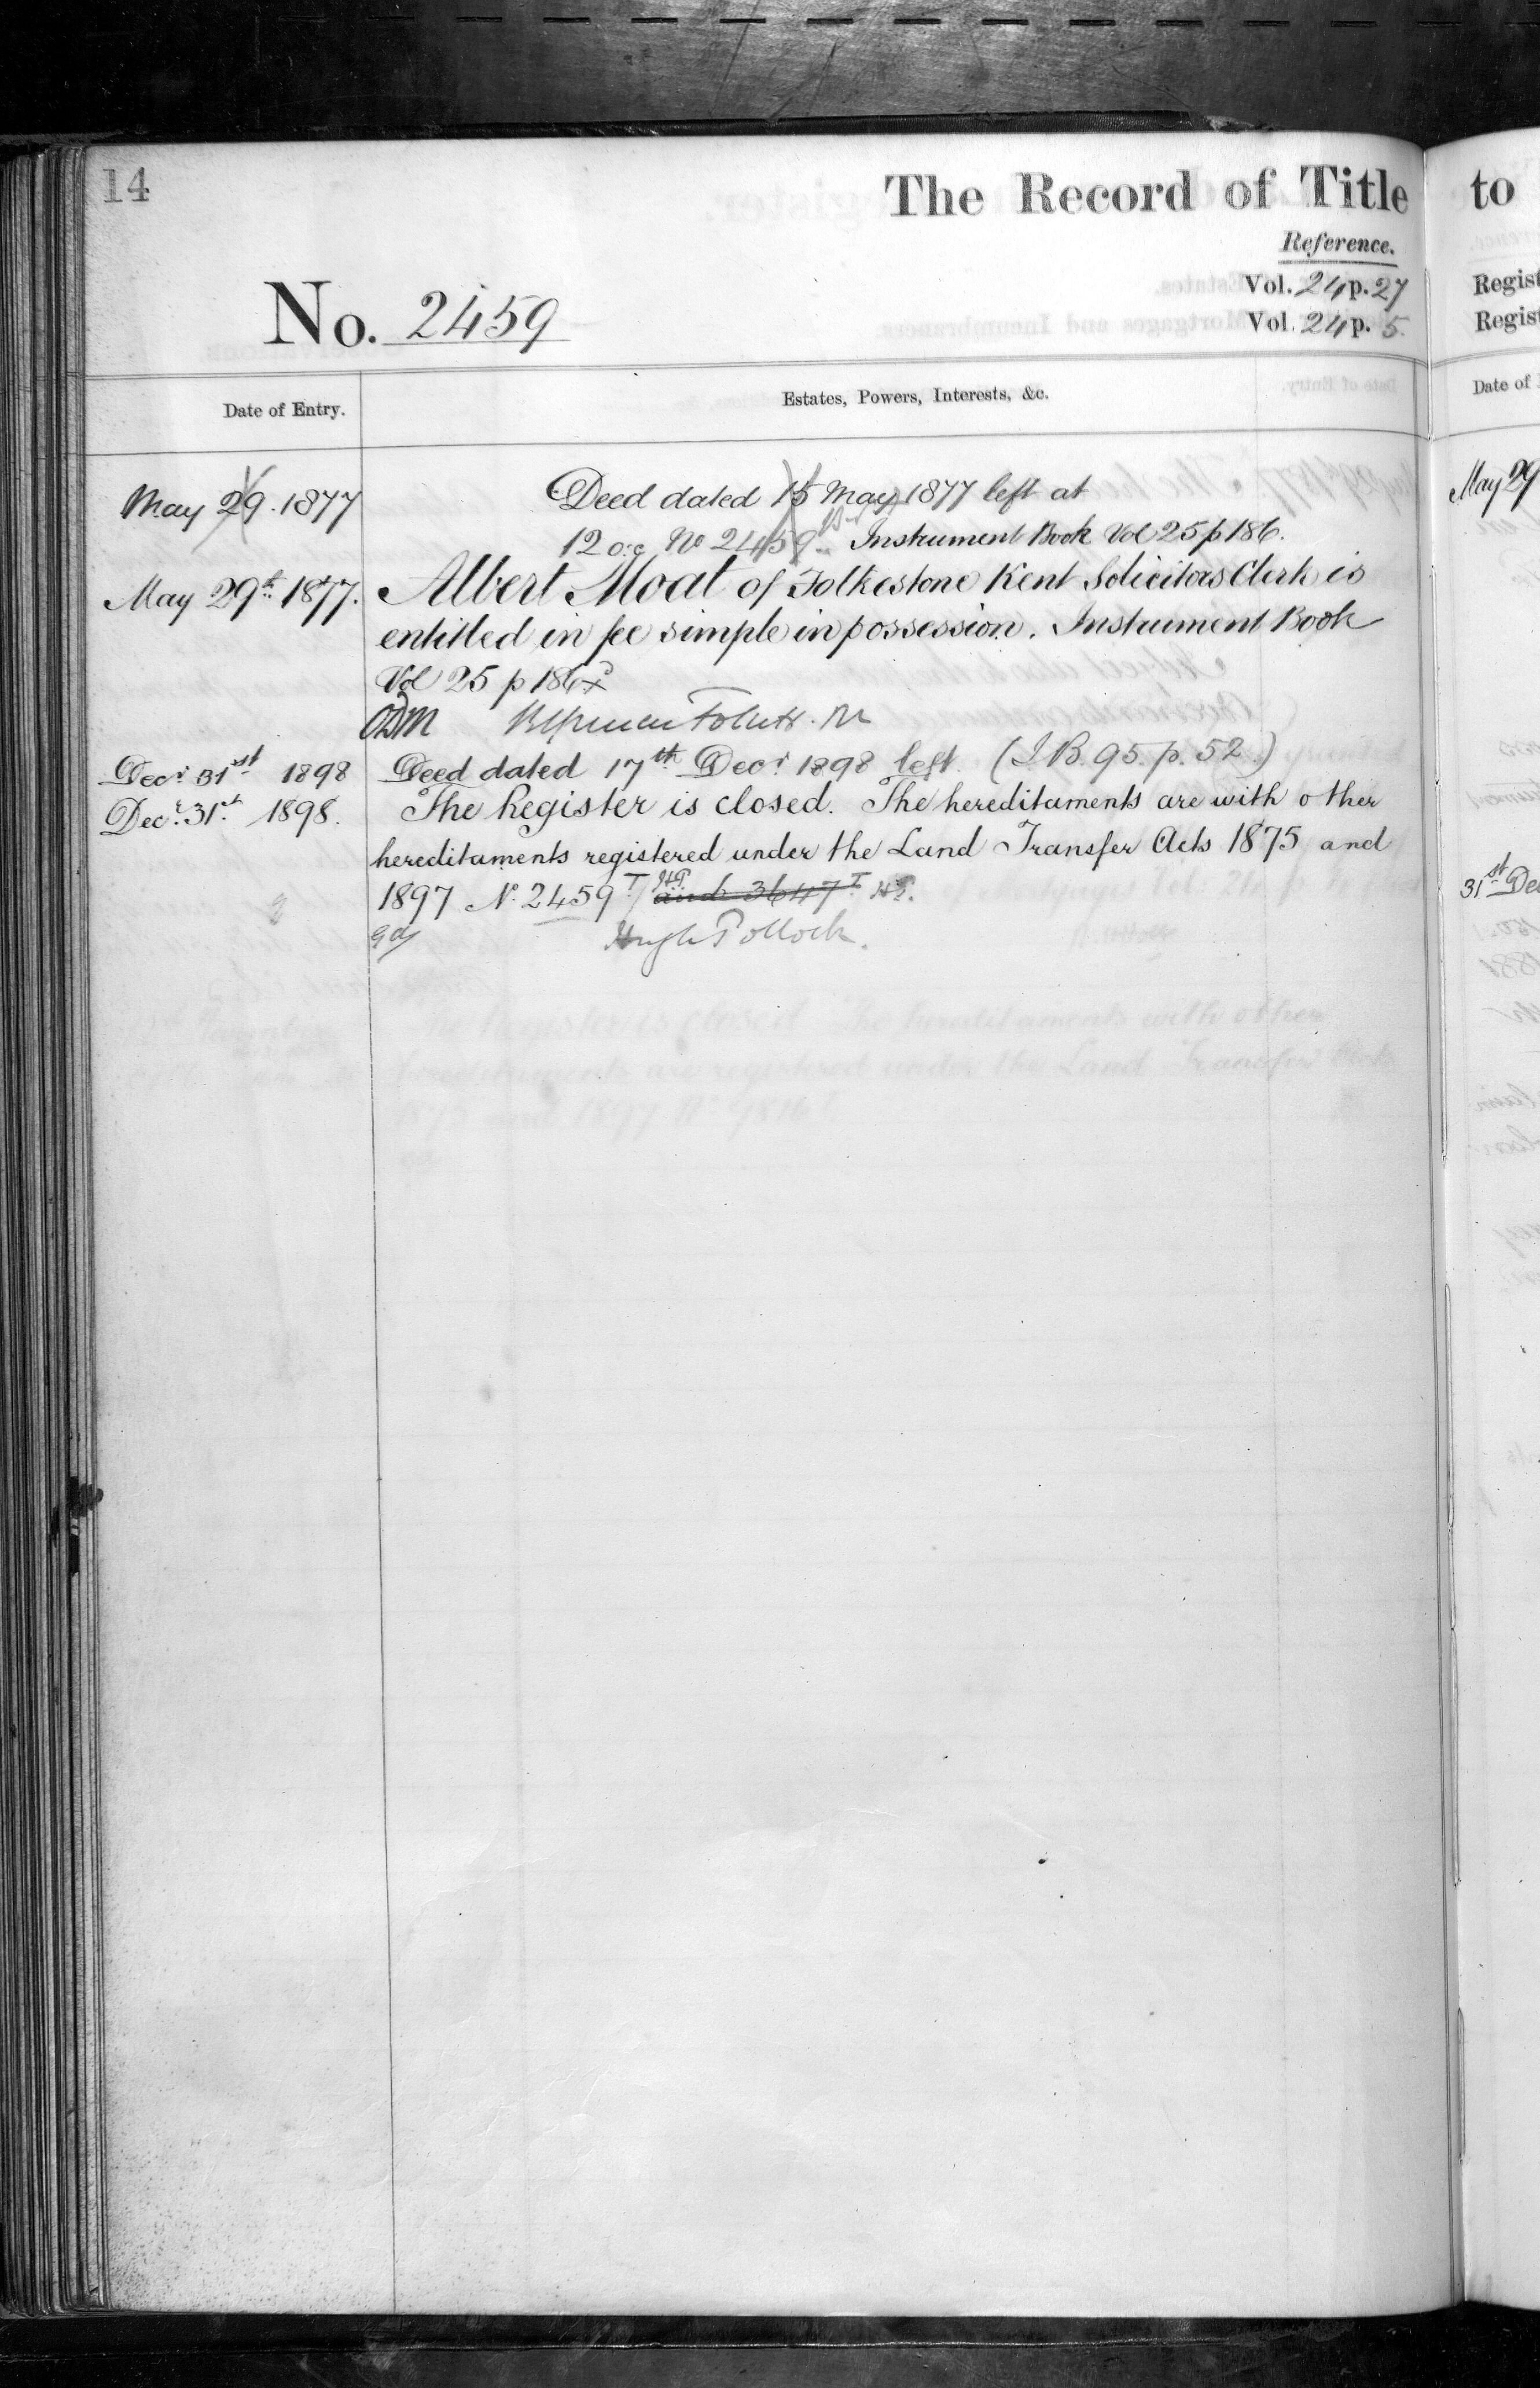 14
The Record of Title
Reference.
Vol. 24 p. 27
Vol. 24 p. 5.
No. 2459
Date of Entry.
Estates, Powers, Interests, &c.
May 29. 1877
Deed dated 15 May 1877 left at
12 o.c No 2459 Instrument Book Vol 25 p 186.
May 29th 1877.
Albert Moat of Folkestone Kent Solicitors Clerk is
entitled in fee simple in possession. Instrument Book
Vol 25 p 186
ODM
Decr 31st 1898
Deed dated 17th Decr 1898 left. (I.B. 95. p. 52.)
Decr. 31st 1898.
The Register is closed. The hereditaments are with other
hereditaments registered under the Land Transfer Acts 1875 and
1897 No. 2459 T and 3647 T HP.
Hugh Pollock.
to
Regist
Regist
Date of
May 29
31st De